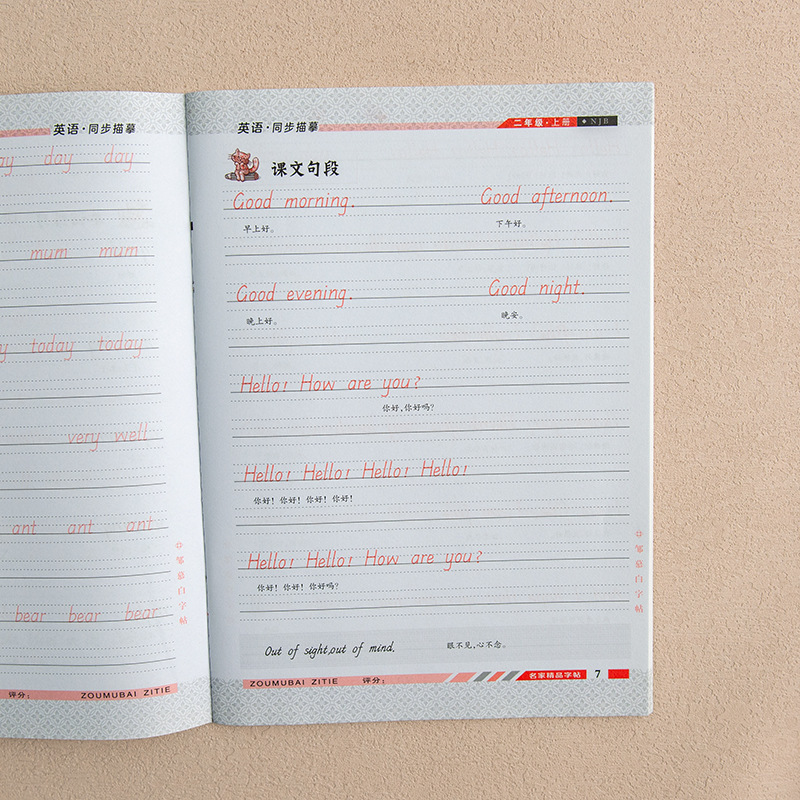 英语·同步描摹
day day
mum mum
today today
very well
ant ant ant
bear bear bear
邹慕白字帖
评分：
ZOUMUBAI ZITIE
英语·同步描摹
二年级·上册 ◆NJB
课文句段
Good morning. Good afternoon.
早上好。 下午好。
Good evening. Good night.
晚上好。 晚安。
Hello! How are you?
你好，你好吗?
Hello! Hello! Hello! Hello!
你好! 你好! 你好! 你好!
Hello! Hello! How are you?
你好! 你好! 你好吗?
邹慕白字帖
Out of sight,out of mind. 眼不见,心不念。
ZOUMUBAI ZITIE 评分： 名家精品字帖 7